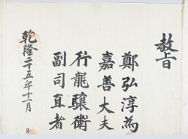 教旨
鄭弘淳為
嘉善大夫
行龍驤衛
副司直者
乾隆二十五年十二月